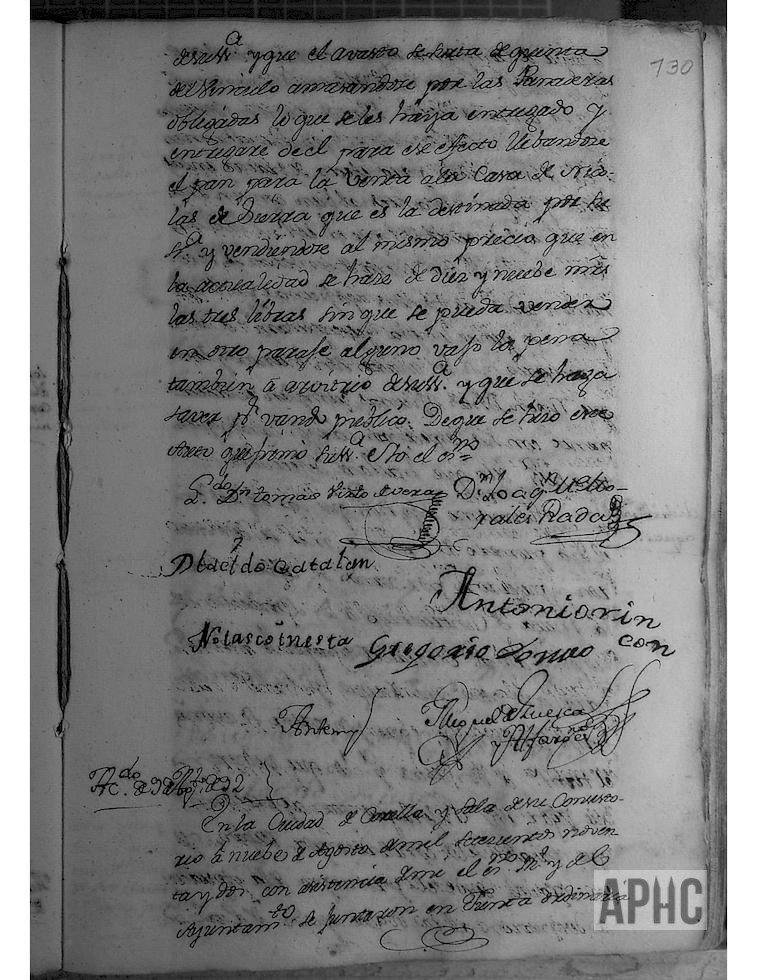 130
de su S.ª y que el avasto se haga de quenta
del vinculo amasandose por las Panaderas
obligadas lo que se les haya entregado y
entregare de el para ese efecto llebandose
el pan para la benta a la Casa de
las de Sierra que es la destinada por su
S.ª y vendiendose al mismo precio que en
la actualidad se haze de diez y nuebe mrs
las tres libras sin que se pueda vender
en otro paraje alguno vajo la pena
tambien a arvitrio de su S.ª y que se haga
saver p.r vando publico. De que se hizo este
Auto que firmó su S.ª e Yo el ss.no
L.do Dn tomas Virto de vera Dn Joaqn Mo
rales Rada
Catalan
Antonio rin
con
Nolasco inesta Gregorio Lonno
Antemi Miguel de Huesca
y Alfaro
En la Ciudad de Corella y Sala de su Consisto-
rio á nuebe de Agosto de mil setecientos noven
ta y dos con asistencia de mi el ss.no R.l y de el
Ayuntam.to se juntaron en Junta ordinaria
APHC